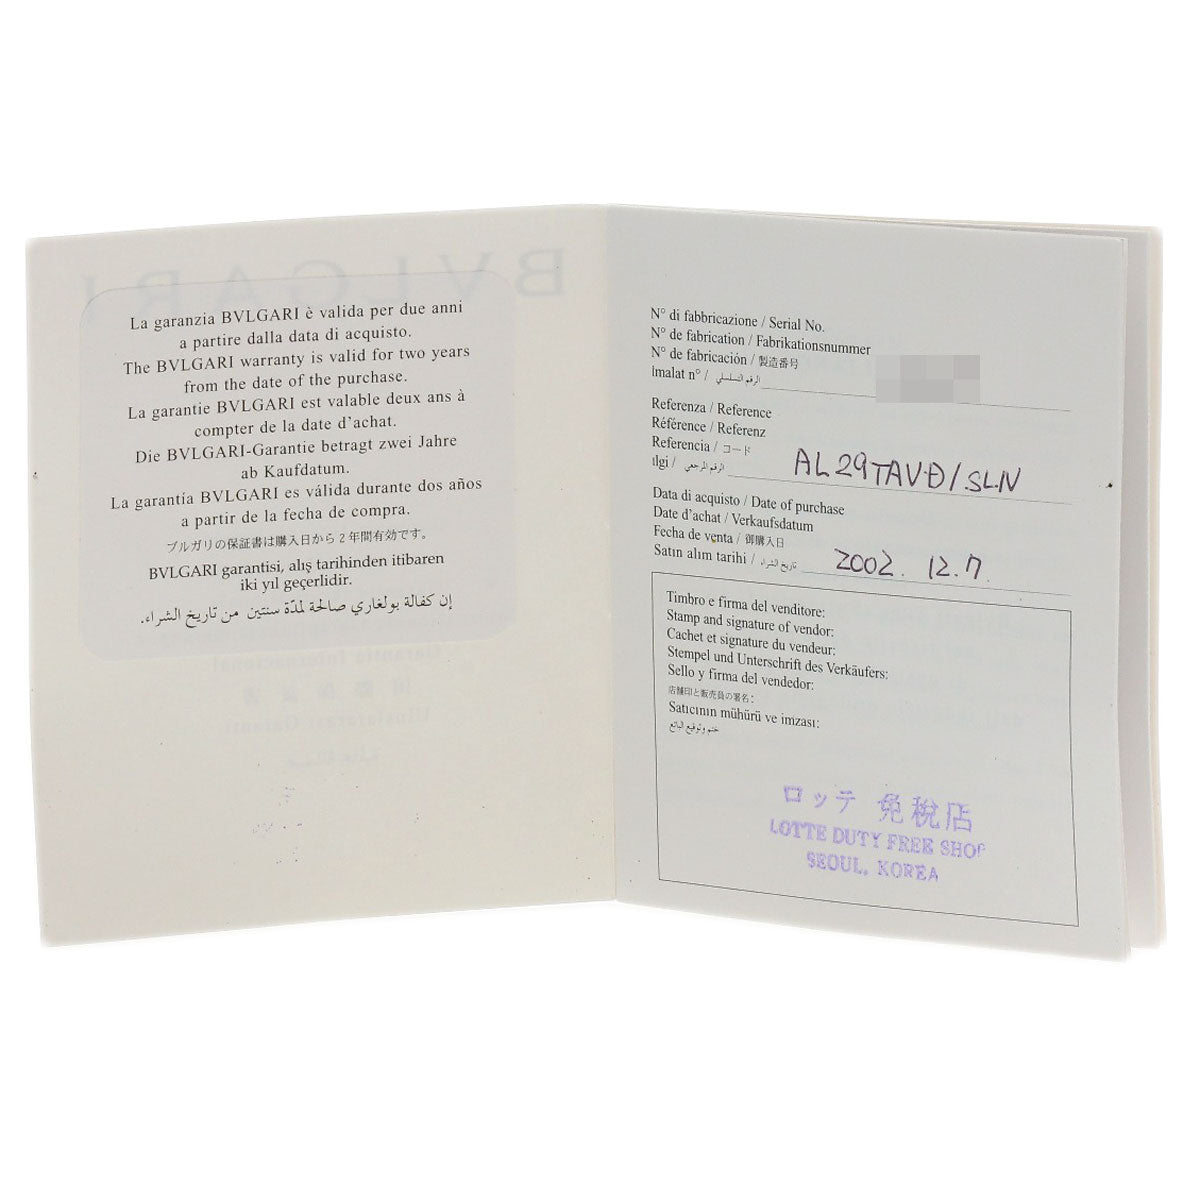 La garanzia BVLGARI è valida per due anni
a partire dalla data di acquisto.
The BVLGARI warranty is valid for two years
from the date of the purchase.
La garantie BVLGARI est valable deux ans à
compter de la date d'achat.
Die BVLGARI-Garantie betragt zwei Jahre
ab Kaufdatum.
La garantía BVLGARI es válida durante dos años
a partir de la fecha de compra.
ブルガリの保証書は購入日から2年間有効です。
BVLGARI garantisi, alış tarihinden itibaren
iki yıl geçerlidir.
إن كفالة بولغاري صالحة لمدّة سنتين من تاريخ الشراء.
N° di fabbricazione / Serial No.
N° de fabrication / Fabrikationsnummer
N° de fabricación / 製造番号
Imalat n° / الرقم التسلسلي
Referenza / Reference
Référence / Referenz
Referencia / コード
ılgi / الرقم المرجعي AL29TAVD/SLN
Data di acquisto / Date of purchase
Date d'achat / Verkaufsdatum
Fecha de venta / 御購入日
Satın alım tarihi / تاريخ الشراء 2002. 12.7
Timbro e firma del venditore:
Stamp and signature of vendor:
Cachet et signature du vendeur:
Stempel und Unterschrift des Verkäufers:
Sello y firma del vendedor:
店舗印と販売員の署名:
Satıcının mühürü ve imzası:
ختم وتوقيع البائع
ロッテ 免稅店
LOTTE DUTY FREE SHOP
SEOUL, KOREA